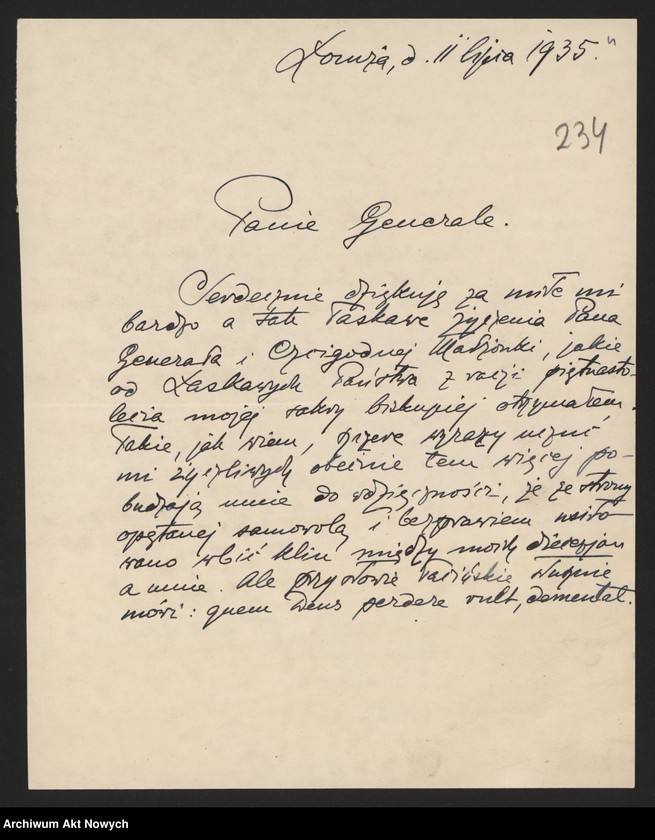 Łomża, d. 11 lipca 1935.
234
Panie Generale.
Serdecznie dziękuję za miłe mi
bardzo a tak łaskawe życzenia Pana
Generała i Czcigodnej Małżonki, jakie
od Łaskawych Państwa z racji piętnasto-
lecia mojej sakry biskupiej otrzymałem.
Takie, jak wiem, szczere wyrazy uczuć
mi życzliwych obecnie tem więcej po-
budzają mnie do wdzięczności, że ze strony
opętanej samowolą i bezprawiem usiło-
wano wbić klin między moich diecezjan
a mnie. Ale przysłowie łacińskie słusznie
mówi: quem Deus perdere vult, dementat.
Archiwum Akt Nowych